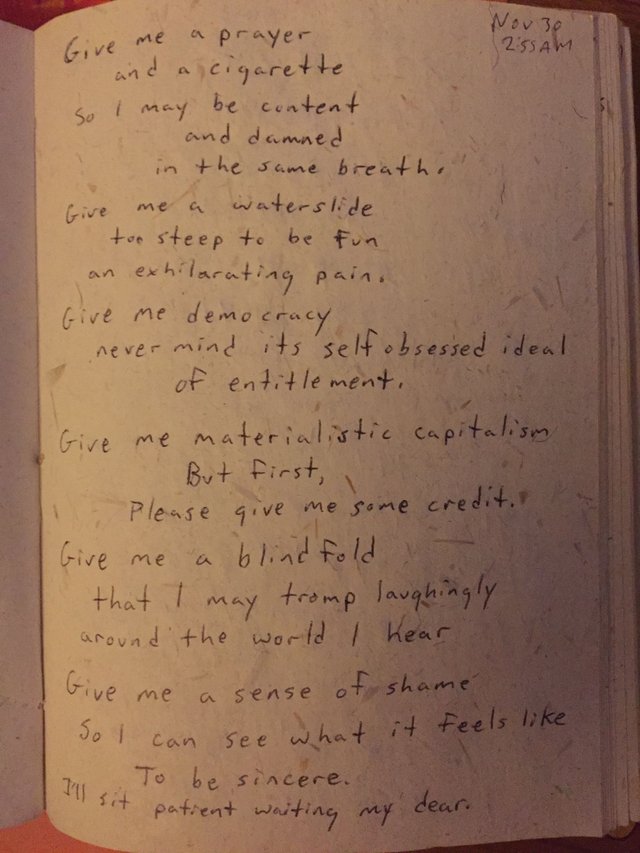 Nov 30
2:55AM
Give me a prayer
and a cigarette
So I may be content
and damned
in the same breath.
Give me a waterslide
too steep to be fun
an exhilarating pain.
Give me democracy
never mind its self obsessed ideal
of entitlement.
Give me materialistic capitalism
But first,
Please give me some credit.
Give me a blindfold
that I may tromp laughingly
around the world I hear
Give me a sense of shame
So I can see what it feels like
To be sincere.
I'll sit patient waiting my dear.